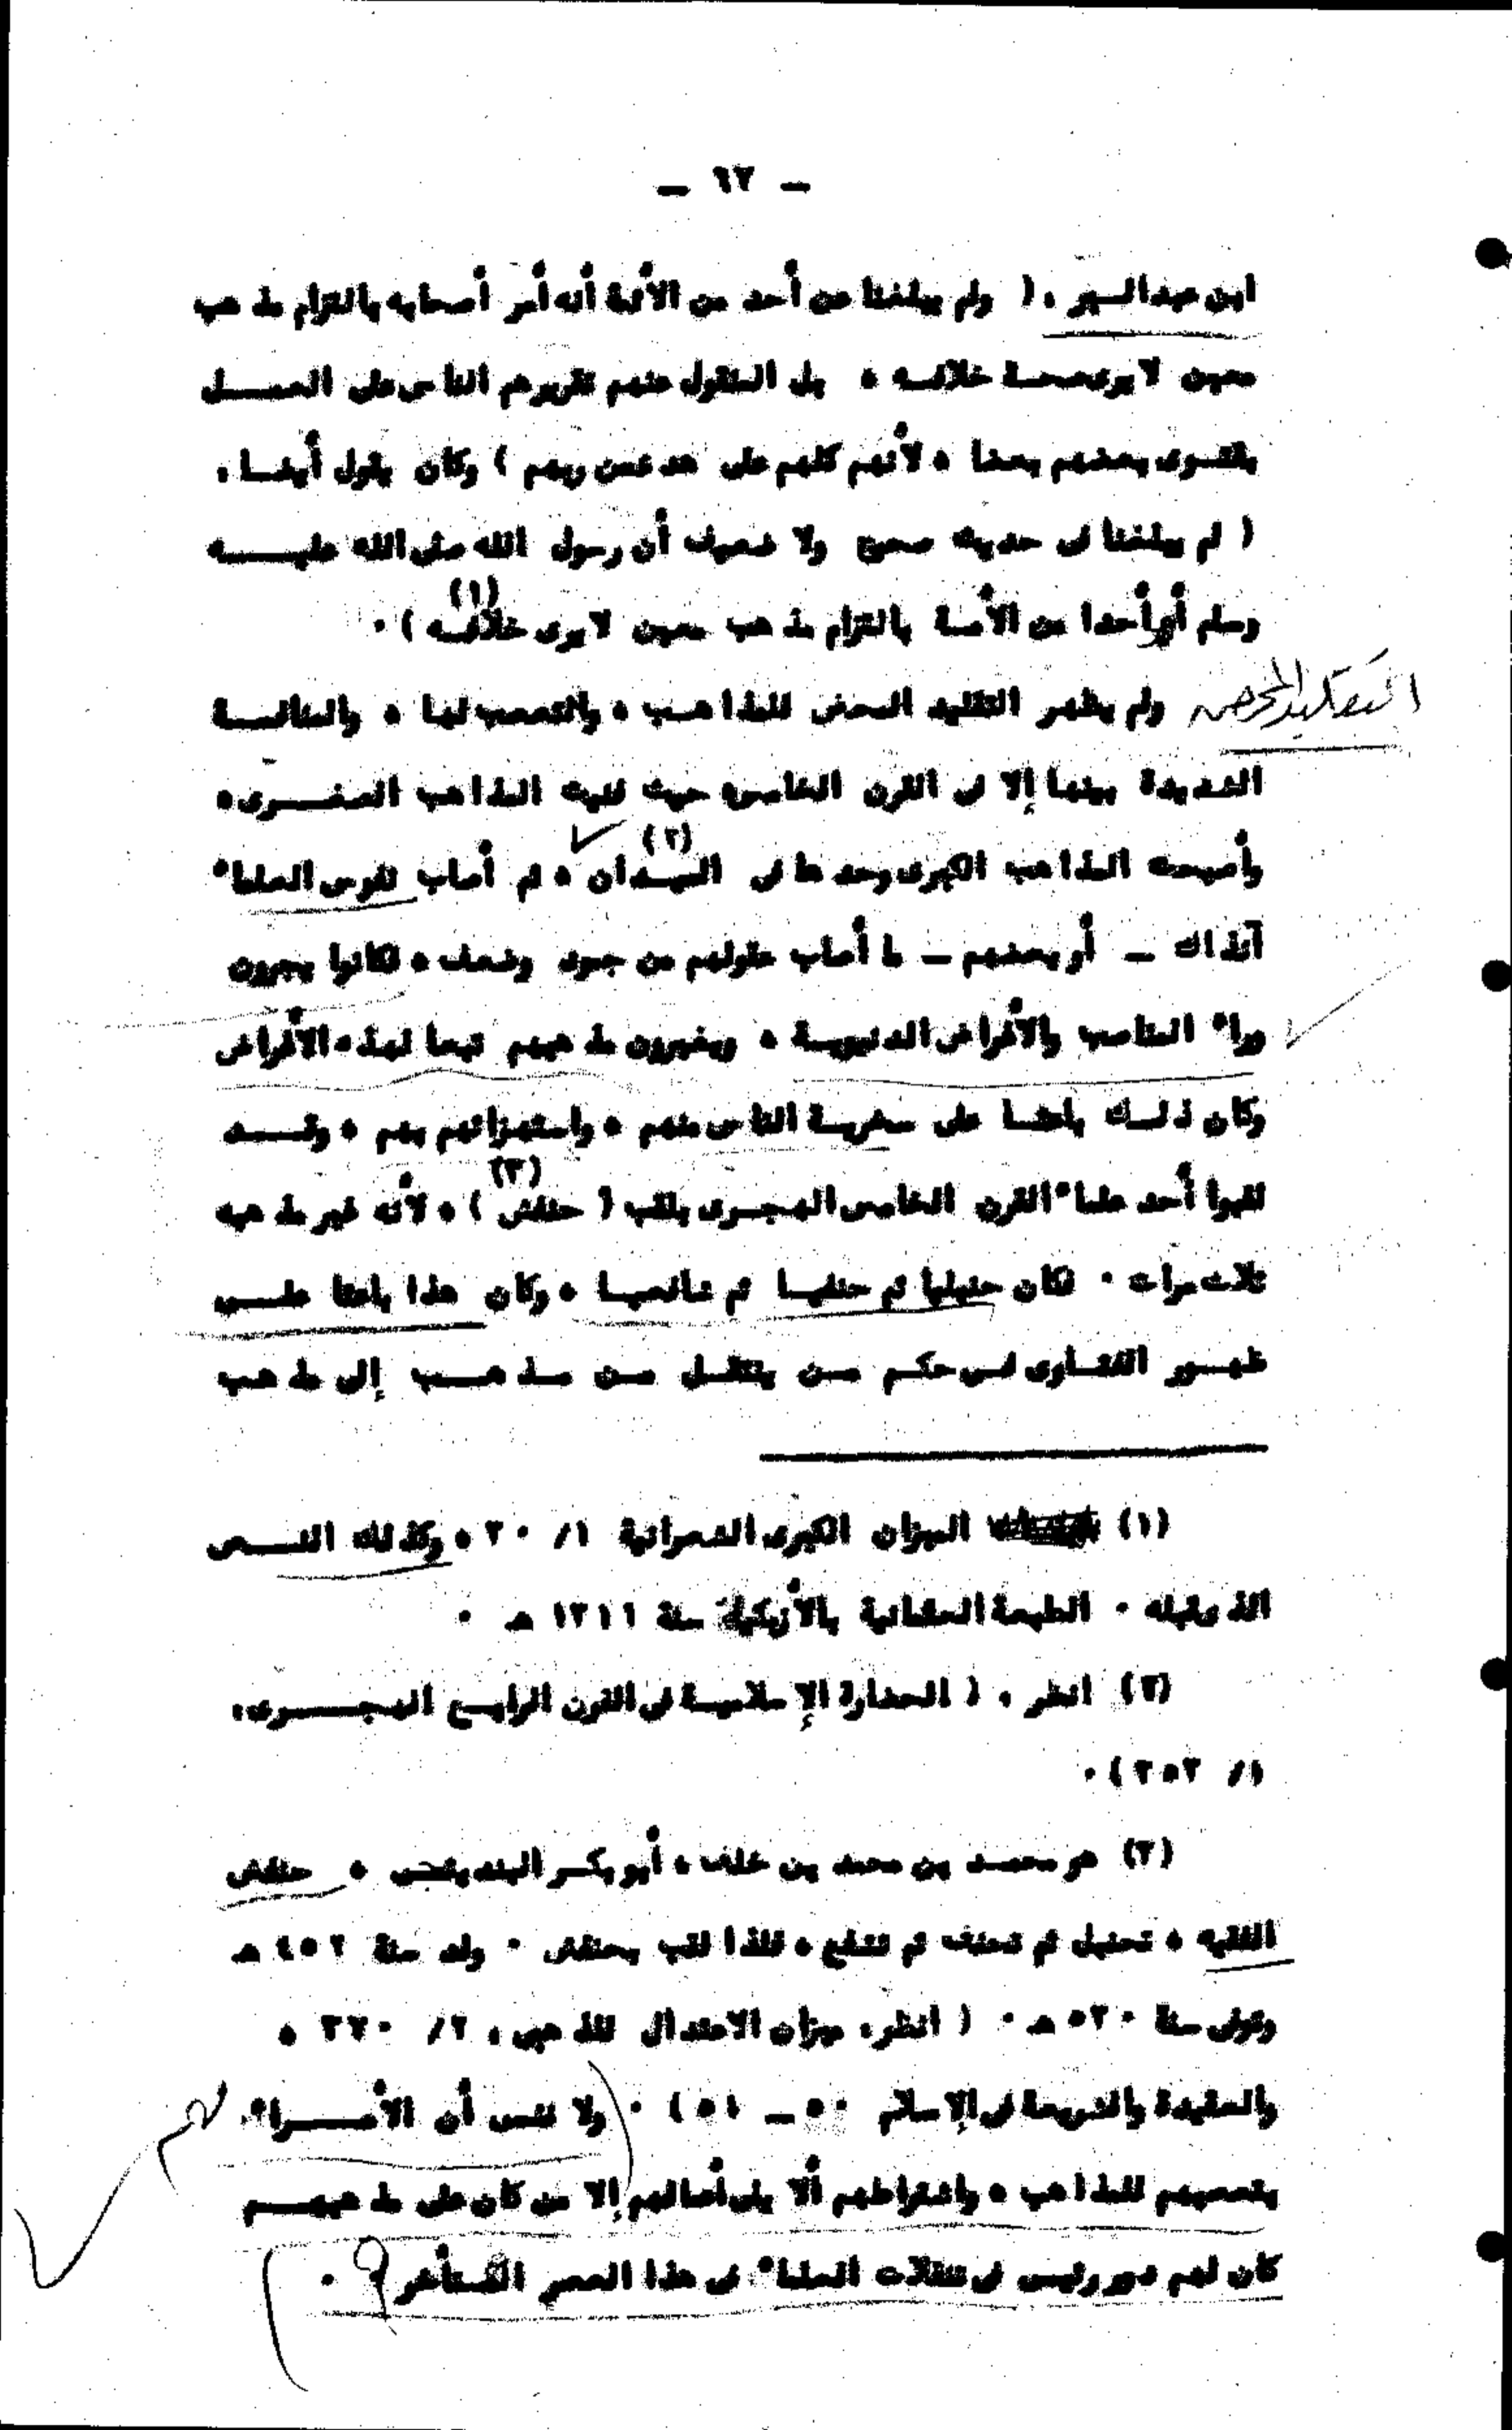 — ٦٧ —
ابن عبدالبر : ( ولم يبلغنا عن أحد من الأئمة أنه أمر أصحابه بالتزام مذهب
معين لا يرى صحة خلافه ، بل المنقول عنهم تقريرهم الناس على العمل
بفتوى بعضهم بعضا ، لأنهم كلهم على هدى من ربهم ) وكان يقول أيضا :
( لم يبلغنا في حديث صحيح ولا ضعيف أن رسول الله صلى الله عليه
وسلم أمر أحدا من الأمة بالتزام مذهب معين لا يرى خلافه (١) ) .
التقليد المحض
ولم يظهر التقليد المحض للمذاهب ، والتعصب لها ، والمنافسة
الشديدة بينها إلا في القرن الخامس، حيث فنيت المذاهب الصغرى ،
وأصبحت المذاهب الكبرى وحدها في الميدان (٢) ، ثم أصاب نفوس العلماء
آنذاك — أو بعضهم — ما أصاب عقولهم من جمود وضعف ، فكانوا يجرون
وراء المناصب والأغراض الدنيوية ، ويغيرون مذهبهم تبعا لهذه الأغراض
وكان ذلك باعثا على سخرية الناس منهم ، واستهزائهم بهم ، وقد
لقبوا أحد علماء القرن الخامس الهجرى بلقب ( حنفش ) (٣) ، لأنه غير مذهبه
ثلاث مرات . فكان حنبليا ثم حنفيا ثم شافعيا ، وكان هذا باعثا على
ظهور الفتاوى في حكم من ينتقل من مذهب إلى مذهب
(١) الميزان الكبرى الشعرانية ١/ ٣٠ ، وكذلك النص
الذى قبله . الطبعة العثمانية بالأزبكية سنة ١٣١١ هـ .
(٢) انظر : ( الحضارة الإسلامية في القرن الرابع الهجرى:
١/ ٣٥٣ ) .
(٣) هو محمد بن محمد بن خلف ، أبو بكر البندنيجى ، حنفش
الفقيه ، تحنبل ثم تحنف ثم تشفع ، فلذا لقب بحنفش . ولد سنة ٤٥٣ هـ
وتوفى سنة ٥٣٠ هـ . ( انظر: ميزان الاعتدال للذهبى : ٢/ ٣٧٠ ،
والعقيدة والشريعة في الإسلام ٥٠ — ٥١ ) . ولا ننس أن الأمراء
بتعصبهم للمذاهب ، واشتراطهم ألا يلى أعمالهم إلا من كان على مذهبهم
كان لهم دور رئيس في تنقلات العلماء في هذا العصر المتأخر .